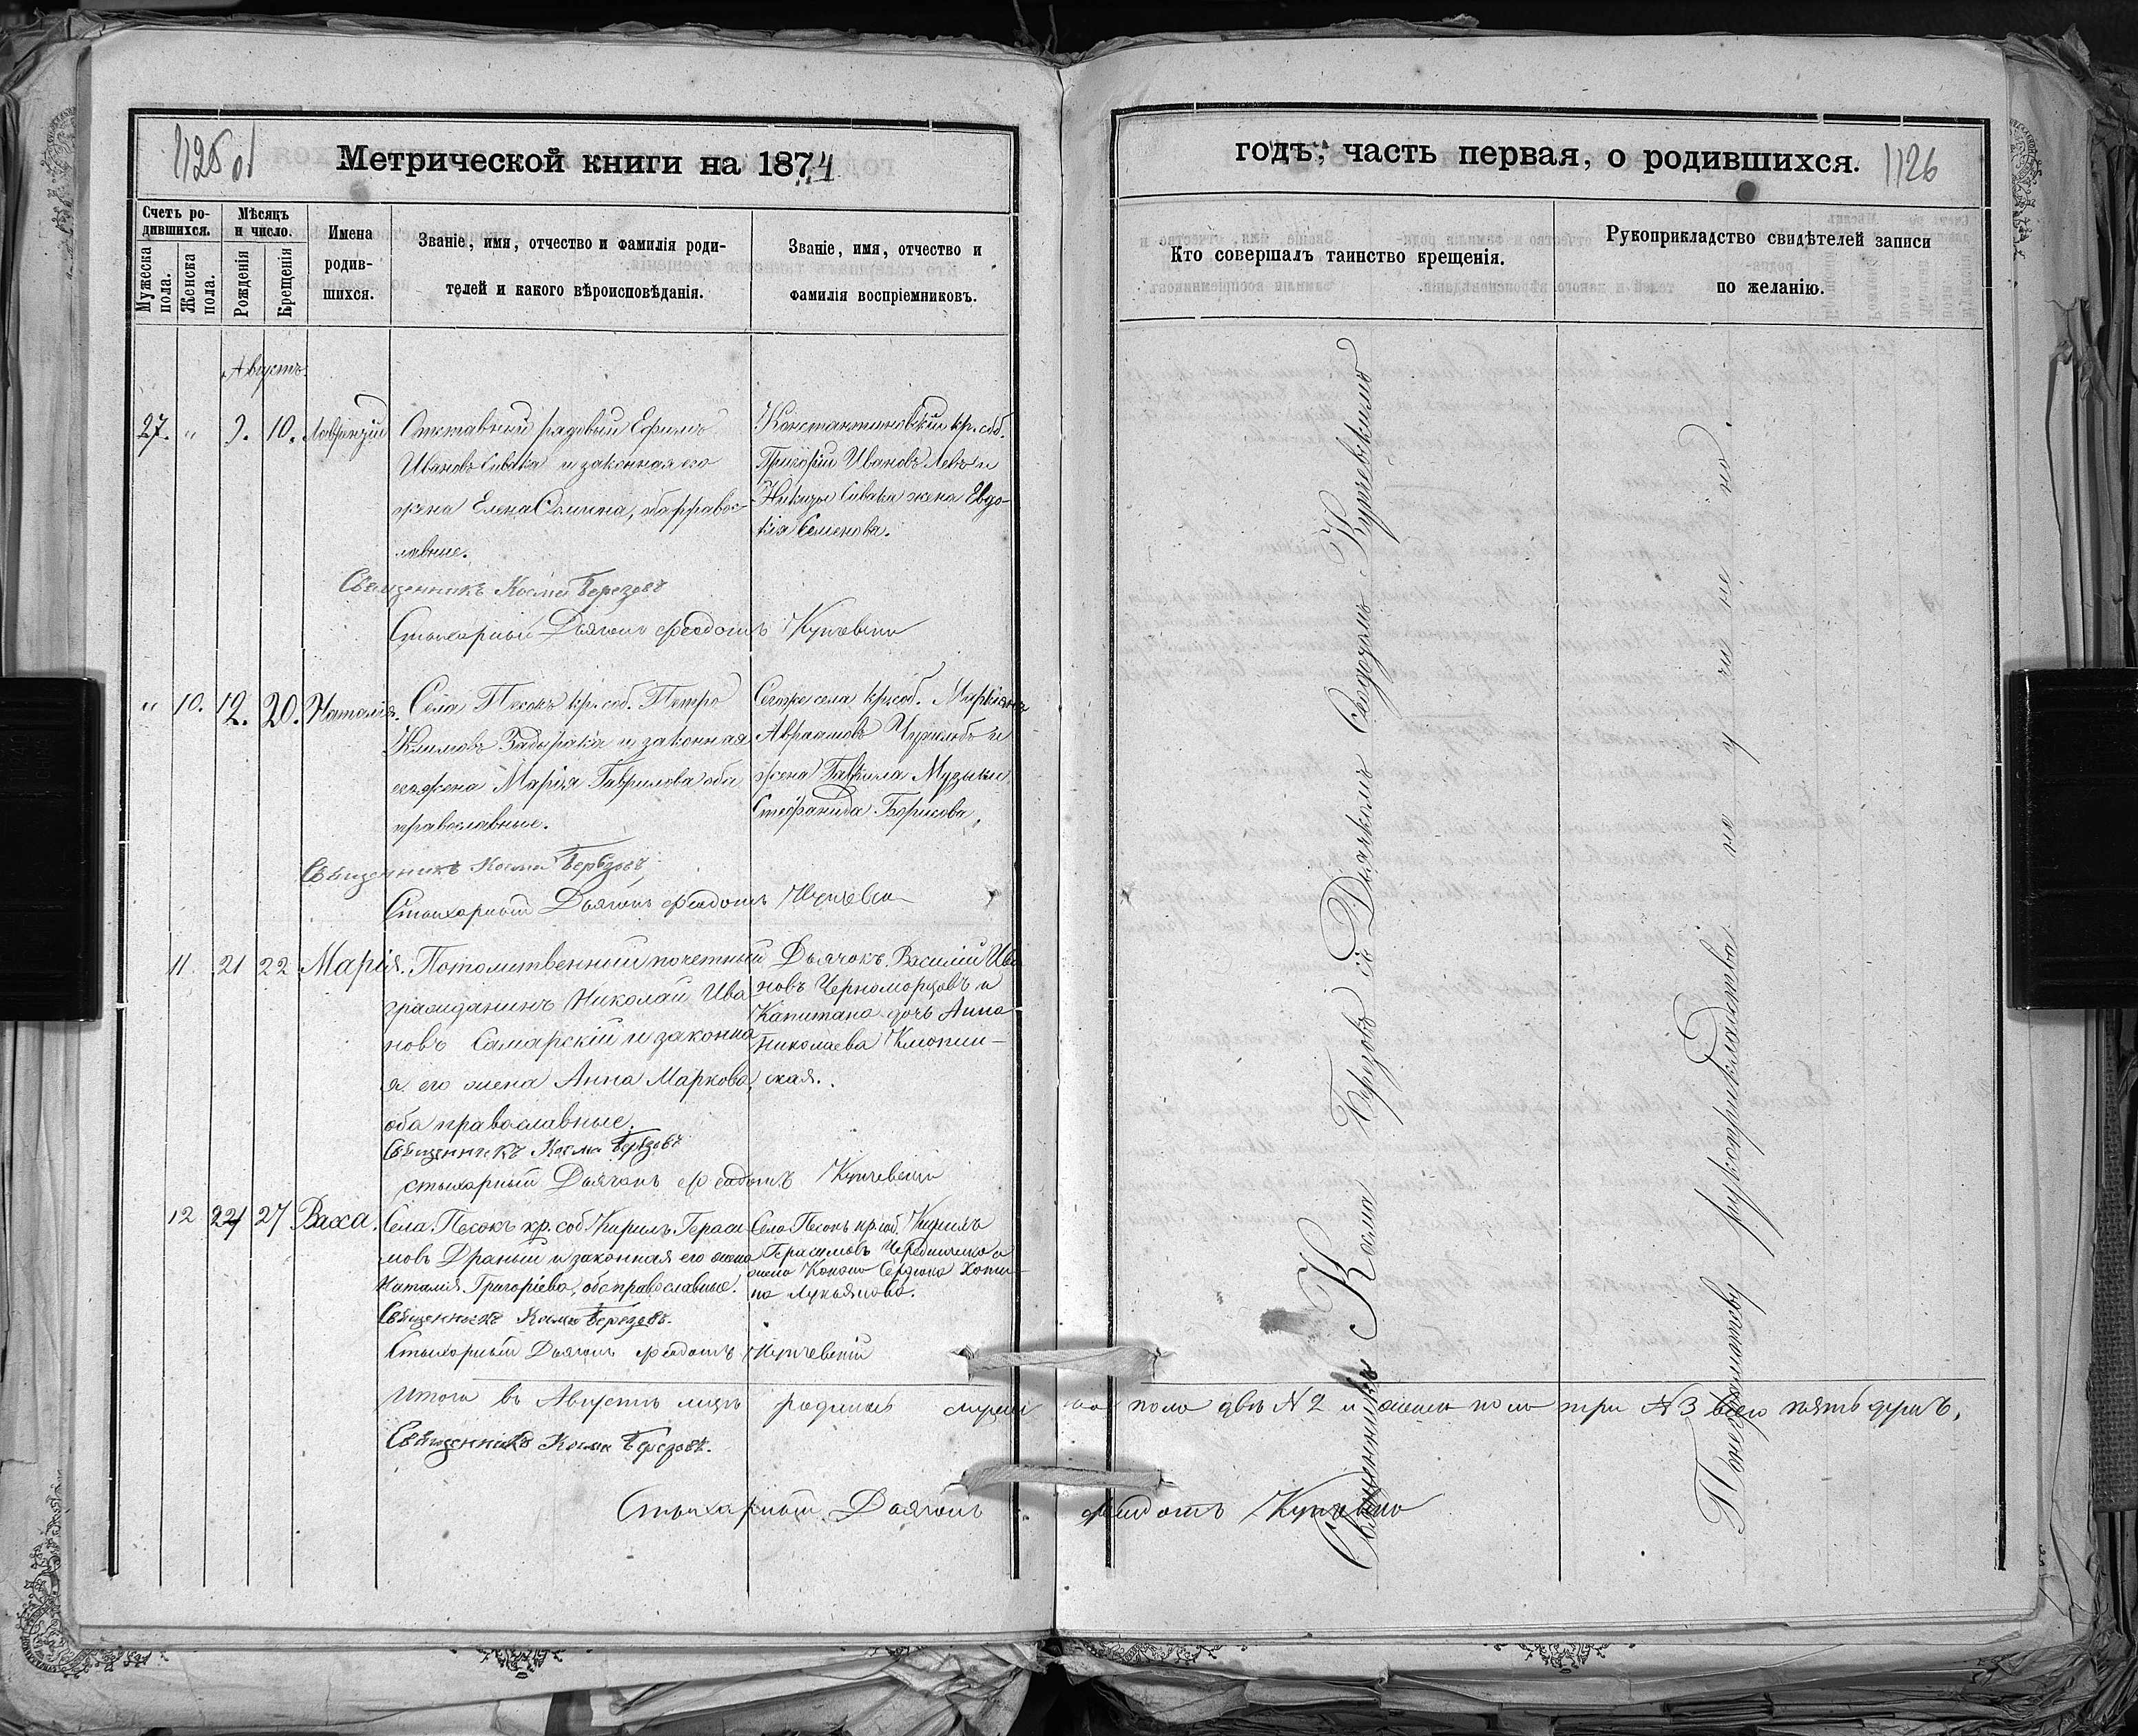 1125 об
Метрической книги на 1874
годъ, часть первая, о родившихся.
1126
Счетъ родившихся.
Мужеска пола.
Женска пола.
Мѣсяцъ и число.
Рожденія
Крещенія
Имена родившихся.
Званіе, имя, отчество и фамилія родителей и какого вѣроисповѣданія.
Званіе, имя, отчество и фамилія воспріемниковъ.
Кто совершалъ таинство крещенія.
Рукоприкладство свидѣтелей записи по желанію.
Августъ
27. " 9. 10. Лаврентій
Отставный рядовый Ефимъ
Ивановъ Сивака и законная его
жена Елена Фомина, оба православные.
Константиновскій кр. соб.
Григорій Ивановъ Левъ и
Никиты Сивака жена Евдокія Семенова.
Священникъ Косма Березовъ
Стихарный Дьячокъ Феодотъ Купчевскій
" 10. 12. 20. Наталія.
Села Песокъ кр. соб. Петро
Климовъ Задырака и законная
его жена Марія Гаврилова оба
православные.
села кр. соб.
Авраамовъ и
жена Гаврила Музыки
Стефанида Борисова.
Священникъ Косма Березовъ
Стихарный Дьячокъ Феодотъ Купчевскій
11. 21 22 Марія.
Потомственный почетный
гражданинъ Николай Ивановъ Самарскій и законная его жена Анна Маркова,
оба православные.
Дьячокъ Василій Ивановъ Черноморцовъ и
Капитана дочь Анна
Николаева
Священникъ Косма Березовъ
стихарный Дьячокъ Феодотъ Купчевскій
12 24 27 Васса.
Села Песокъ кр. соб. Кирилъ Герасимовъ Драный и законная его жена
Наталія Григоріева, оба православные.
Села Песокъ кр. соб. Кирилъ
Герасимовъ Чередниченко и
жена Конона Сердюка
Лукьянова.
Священникъ Косма Березовъ.
Стихарный Дьячокъ Феодотъ Купчевскій
Итого въ Августѣ мцѣ родилось мужеска пола два №2 и женска пола три №3 всего пять душъ.
Священникъ Косма Березовъ.
Стихарный Дьячокъ Феодотъ Купчевскій
Священникъ Косма Березовъ съ Дьячкомъ Феодотомъ Купчевскимъ
По неграмотству рукоприкладства не учинено.